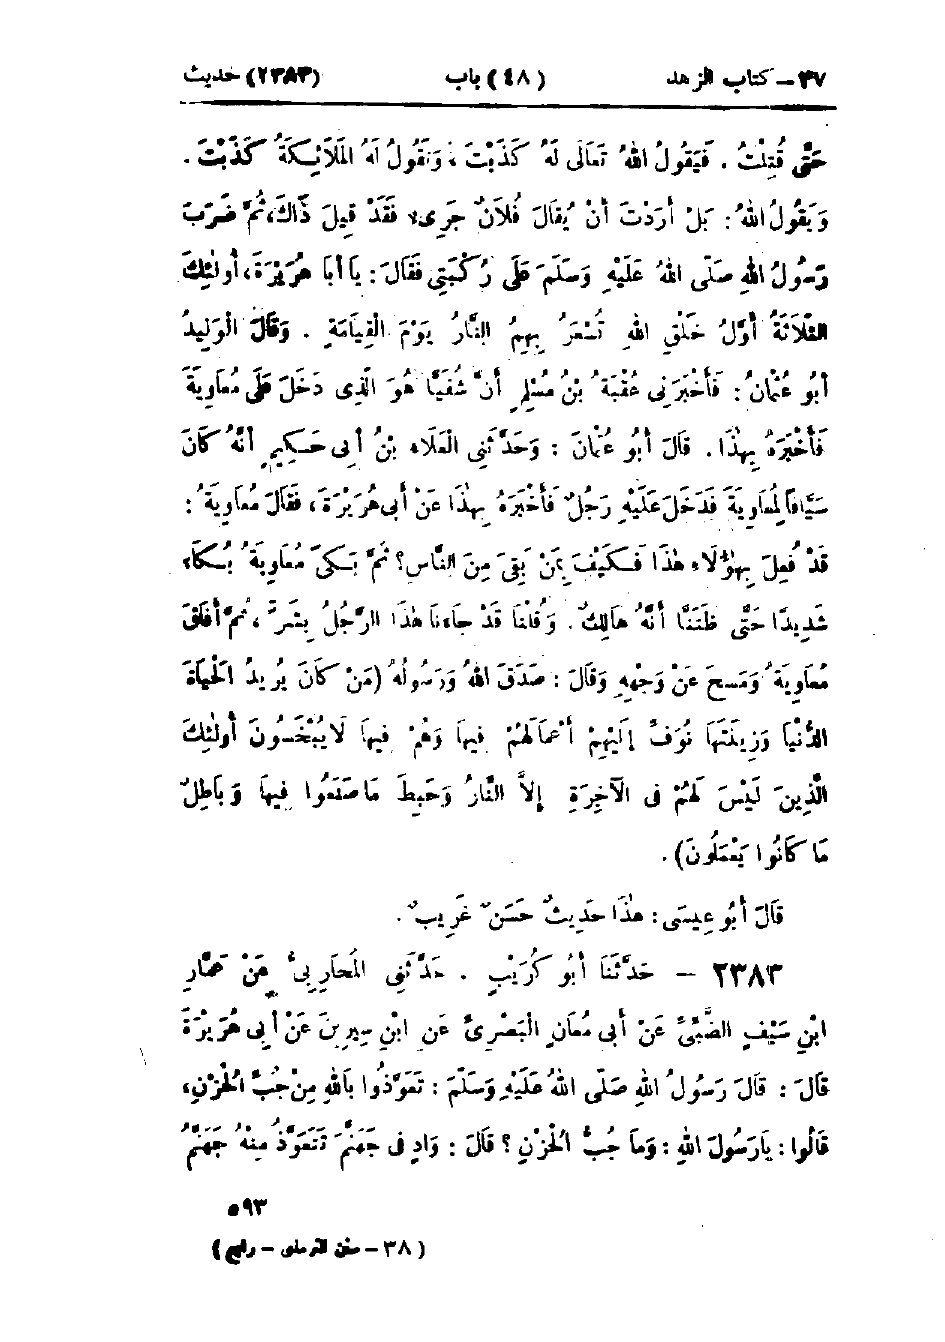 ٣٧ - كتاب الزهد (٤٨) باب (٢٣٨٣) حديث
حَتَّى قُتِلْتُ . فَيَقُولُ اللهُ تَعَالَى لَهُ كَذَبْتَ ، وَتَقُولُ لَهُ الْمَلَائِكَةُ كَذَبْتَ .
وَيَقُولُ اللهُ : بَلْ أَرَدْتَ أَنْ يُقَالَ فُلَانٌ جَرِىءٌ فَقَدْ قِيلَ ذَاكَ، ثُمَّ ضَرَبَ
رَسُولُ اللهِ صَلَّى اللهُ عَلَيْهِ وَسَلَّمَ عَلَى رُكْبَتِى فَقَالَ : يَا أَبَا هُرَيْرَةَ ، أُولٰئِكَ
الثَّلَاثَةُ أَوَّلُ خَلْقِ اللهِ تُسْعَرُ بِهِمُ النَّارُ يَوْمَ الْقِيَامَةِ . وَقَالَ الْوَلِيدُ
أَبُو عُثْمَانَ : فَأَخْبَرَنِى عُقْبَةُ بْنُ مُسْلِمٍ أَنَّ شُفَيًّا هُوَ الَّذِى دَخَلَ عَلَى مُعَاوِيَةَ
فَأَخْبَرَهُ بِهٰذَا . قَالَ أَبُو عُثْمَانَ : وَحَدَّثَنِى الْعَلَاءُ بْنُ أَبِى حَكِيمٍ أَنَّهُ كَانَ
سَيَّافًا لِمُعَاوِيَةَ فَدَخَلَ عَلَيْهِ رَجُلٌ فَأَخْبَرَهُ بِهٰذَا عَنْ أَبِى هُرَيْرَةَ ، فَقَالَ مُعَاوِيَةُ :
قَدْ فُعِلَ بِهٰؤُلَاءِ هٰذَا فَكَيْفَ بِمَنْ بَقِىَ مِنَ النَّاسِ ؟ ثُمَّ بَكَى مُعَاوِيَةُ بُكَاءً
شَدِيدًا حَتَّى ظَنَنَّا أَنَّهُ هَالِكٌ . وَقُلْنَا قَدْ جَاءَنَا هٰذَا الرَّجُلُ بِشَرٍّ ، ثُمَّ أَفَاقَ
مُعَاوِيَةُ وَمَسَحَ عَنْ وَجْهِهِ وَقَالَ : صَدَقَ اللهُ وَرَسُولُهُ (مَنْ كَانَ يُرِيدُ الْحَيَاةَ
الدُّنْيَا وَزِينَتَهَا نُوَفِّ إِلَيْهِمْ أَعْمَالَهُمْ فِيهَا وَهُمْ فِيهَا لَا يُبْخَسُونَ أُولٰئِكَ
الَّذِينَ لَيْسَ لَهُمْ فِى الْآخِرَةِ إِلَّا النَّارُ وَحَبِطَ مَا صَنَعُوا فِيهَا وَبَاطِلٌ
مَا كَانُوا يَعْمَلُونَ) .
قَالَ أَبُو عِيسَى : هٰذَا حَدِيثٌ حَسَنٌ غَرِيبٌ .
٢٣٨٣ - حَدَّثَنَا أَبُو كُرَيْبٍ . حَدَّثَنِى الْمُحَارِبِىُّ عَنْ عَمَّارِ
ابْنِ سَيْفٍ الضَّبِّىِّ عَنْ أَبِى مُعَانٍ الْبَصْرِىِّ عَنِ ابْنِ سِيرِينَ عَنْ أَبِى هُرَيْرَةَ
قَالَ : قَالَ رَسُولُ اللهِ صَلَّى اللهُ عَلَيْهِ وَسَلَّمَ : تَعَوَّذُوا بِاللهِ مِنْ جُبِّ الْحُزْنِ،
قَالُوا : يَا رَسُولَ اللهِ : وَمَا جُبُّ الْحُزْنِ ؟ قَالَ : وَادٍ فِى جَهَنَّمَ تَتَعَوَّذُ مِنْهُ جَهَنَّمُ
٥٩٣
(٣٨ - سنن الترمذى - رابع)